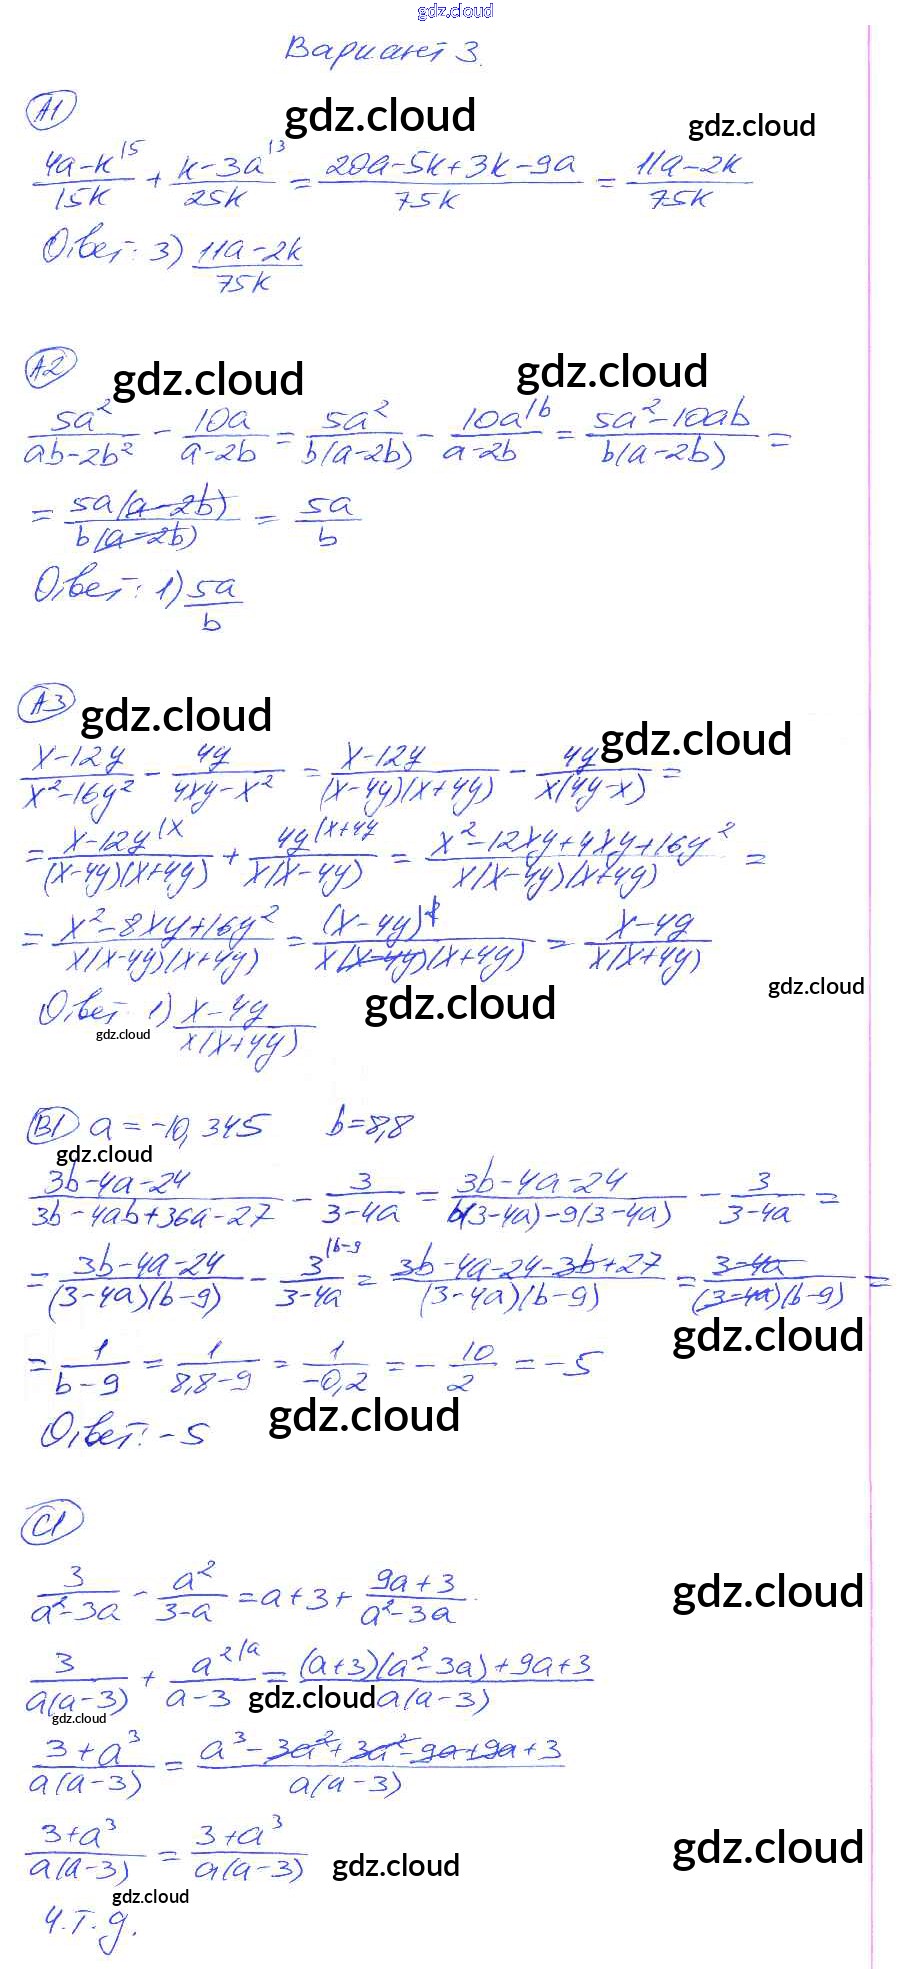 gdz.cloud
Вариант 3.
А1
gdz.cloud gdz.cloud
(4a-k)/15k |5 + (k-3a)/25k |3 = (20a-5k+3k-9a)/75k = (11a-2k)/75k
Ответ: 3) (11a-2k)/75k
А2
gdz.cloud gdz.cloud
5a²/(ab-2b²) - 10a/(a-2b) = 5a²/(b(a-2b)) - 10a|b/(a-2b) = (5a²-10ab)/(b(a-2b)) =
= 5a(a-2b)/(b(a-2b)) = 5a/b
Ответ: 1) 5a/b
А3
gdz.cloud gdz.cloud
(x-12y)/(x²-16y²) - 4y/(4xy-x²) = (x-12y)/((x-4y)(x+4y)) - 4y/(x(4y-x)) =
= (x-12y)|x/((x-4y)(x+4y)) + 4y|x+4y/(x(x-4y)) = (x²-12xy+4xy+16y²)/(x(x-4y)(x+4y)) =
= (x²-8xy+16y²)/(x(x-4y)(x+4y)) = (x-4y)²/(x(x-4y)(x+4y)) = (x-4y)/(x(x+4y))
gdz.cloud gdz.cloud
Ответ: 1) (x-4y)/(x(x+4y))
gdz.cloud
В1 a=-10,345 b=8,8
gdz.cloud
(3b-4a-24)/(3b-4ab+36a-27) - 3/(3-4a) = (3b-4a-24)/(b(3-4a)-9(3-4a)) - 3/(3-4a) =
= (3b-4a-24)/((3-4a)(b-9)) - 3|b-9/(3-4a) = (3b-4a-24-3b+27)/((3-4a)(b-9)) = (3-4a)/((3-4a)(b-9)) =
gdz.cloud
= 1/(b-9) = 1/(8,8-9) = 1/(-0,2) = -10/2 = -5
gdz.cloud
Ответ: -5
С1
3/(a²-3a) - a²/(3-a) = a+3+ (9a+3)/(a²-3a)
gdz.cloud
3/(a(a-3)) + a²|a/(a-3) = ((a+3)(a²-3a)+9a+3)/(a(a-3))
gdz.cloud
gdz.cloud
(3+a³)/(a(a-3)) = (a³-3a²+3a²-9a+9a+3)/(a(a-3))
(3+a³)/(a(a-3)) = (3+a³)/(a(a-3))
gdz.cloud gdz.cloud
gdz.cloud
Ч.т.д.